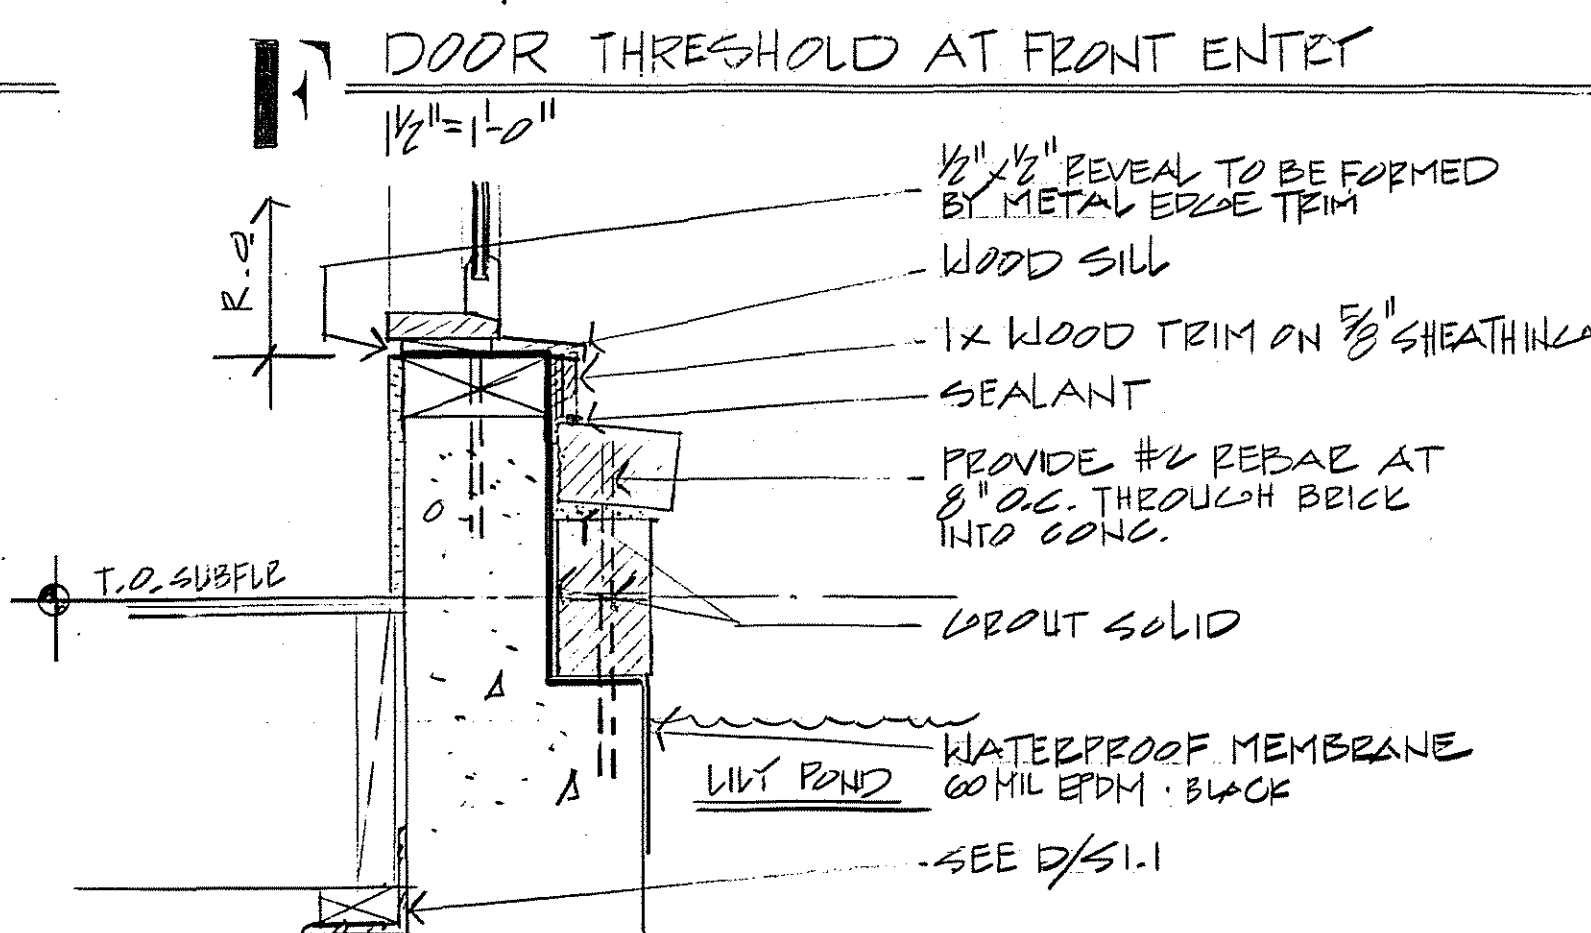 DOOR THRESHOLD AT FRONT ENTRY
1½"=1'-0"
½" x ½" REVEAL TO BE FORMED
BY METAL EDGE TRIM
WOOD SILL
1x WOOD TRIM ON 5/8" SHEATHING
SEALANT
PROVIDE #2 REBAR AT
8" O.C. THROUGH BRICK
INTO CONC.
GROUT SOLID
WATERPROOF MEMBRANE
60 MIL EPDM · BLACK
SEE D/S1.1
R.O.
T.O. SUBFLR
LILY POND